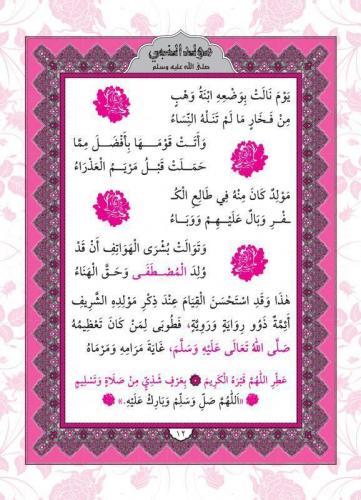 مولد النبي
صلى الله عليه وسلم
يَوْمَ نَالَتْ بِوَضْعِهِ ابْنَةُ وَهْبٍ
مِنْ فَخَارٍ مَا لَمْ تَنَلْهُ النِّسَاءُ
وَأَتَتْ قَوْمَهَا بِأَفْضَلَ مِمَّا
حَمَلَتْ قَبْلُ مَرْيَمُ الْعَذْرَاءُ
مَوْلِدٌ كَانَ مِنْهُ فِي طَالِعِ الْكُـ
ـفْرِ وَبَالٌ عَلَيْهِمْ وَوَبَاءُ
وَتَوَالَتْ بُشْرَى الْهَوَاتِفِ أَنْ قَدْ
وُلِدَ الْمُصْطَفَى وَحَقَّ الْهَنَاءُ
هٰذَا وَقَدِ اسْتَحْسَنَ الْقِيَامَ عِنْدَ ذِكْرِ مَوْلِدِهِ الشَّرِيفِ
أَئِمَّةٌ ذَوُو رِوَايَةٍ وَرَوِيَّةٍ، فَطُوبَى لِمَنْ كَانَ تَعْظِيمُهُ
صَلَّى اللهُ تَعَالَى عَلَيْهِ وَسَلَّمَ، غَايَةَ مَرَامِهِ وَمَرْمَاهُ
عَطِّرِ اللَّهُمَّ قَبْرَهُ الْكَرِيمَ ۞ بِعَرْفٍ شَذِيٍّ مِنْ صَلَاةٍ وَتَسْلِيمٍ
«اَللّٰهُمَّ صَلِّ وَسَلِّمْ وَبَارِكْ عَلَيْهِ.»
١٢